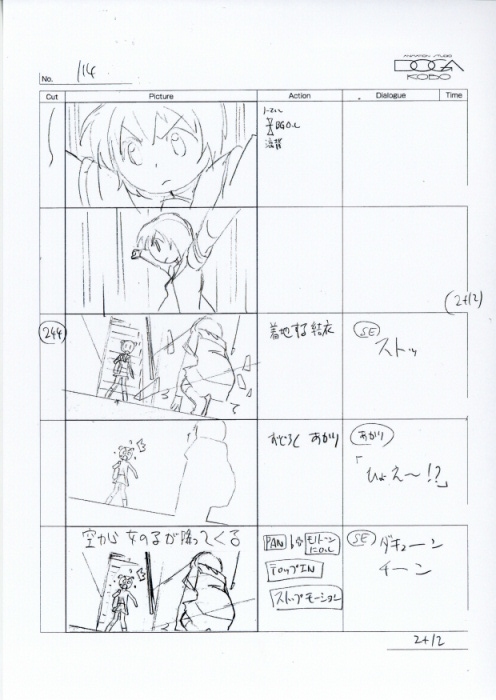 ANIMATION STUDIO
DOGA
KOBO
No. 114
Cut Picture Action Dialogue Time
BG O.L
(2+12)
244
着地する結衣
SE
ストッ
おどろく あかり
あかり
「ひょえ〜!?」
空から女の子が降ってくる
PAN
モノトーンにO.L
テロップIN
ストップモーション
SE
ダキューン
チーン
2+12